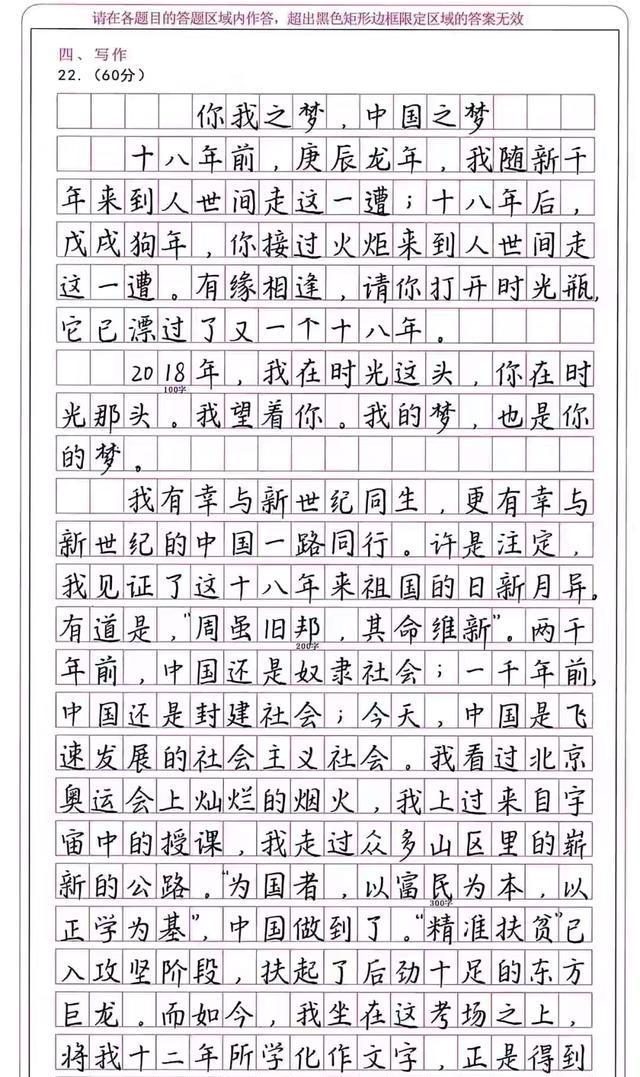 请在各题目的答题区域内作答，超出黑色矩形边框限定区域的答案无效
四、写作
22.（60分）
你我之梦，中国之梦
十八年前，庚辰龙年，我随新千
年来到人世间走这一遭；十八年后，
戊戌狗年，你接过火炬来到人世间走
这一遭。有缘相逢，请你打开时光瓶，
它已漂过了又一个十八年。
2018年，我在时光这头，你在时
100字
光那头。我望着你。我的梦，也是你
的梦。
我有幸与新世纪同生，更有幸与
新世纪的中国一路同行。许是注定，
我见证了这十八年来祖国的日新月异。
有道是，“周虽旧邦，其命维新”。两千
200字
年前，中国还是奴隶社会；一千年前，
中国还是封建社会；今天，中国是飞
速发展的社会主义社会。我看过北京
奥运会上灿烂的烟火，我上过来自宇
宙中的授课，我走过众多山区里的崭
新的公路。“为国者，以富民为本，以
300字
正学为基”，中国做到了。“精准扶贫”已
入攻坚阶段，扶起了后劲十足的东方
巨龙。而如今，我坐在这考场之上，
将我十二年所学化作文字，正是得到